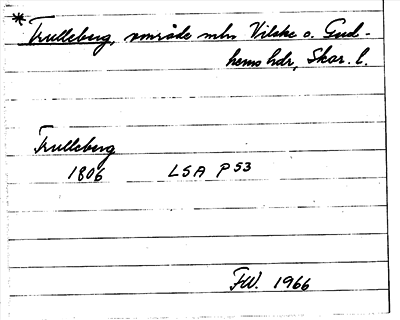 * Trulleberg, område mhn Vilske o. Gud-
hems hdr, Skar. l.
Trulleberg
1806 LSA P 53
FW. 1966